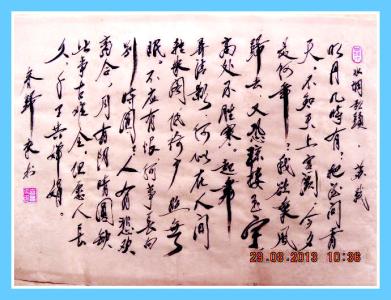 水调歌头 苏轼
明月几时有？把酒问青
天。不知天上宫阙，今夕
是何年？我欲乘风
归去，又恐琼楼玉宇
高处不胜寒。起舞
弄清影，何似在人间
转朱阁，低绮户，照无
眠。不应有恨，何事长向
别时圆？人有悲欢
离合，月有阴晴圆缺
此事古难全。但愿人长
久，千里共婵娟。
29.08.2013 10:36